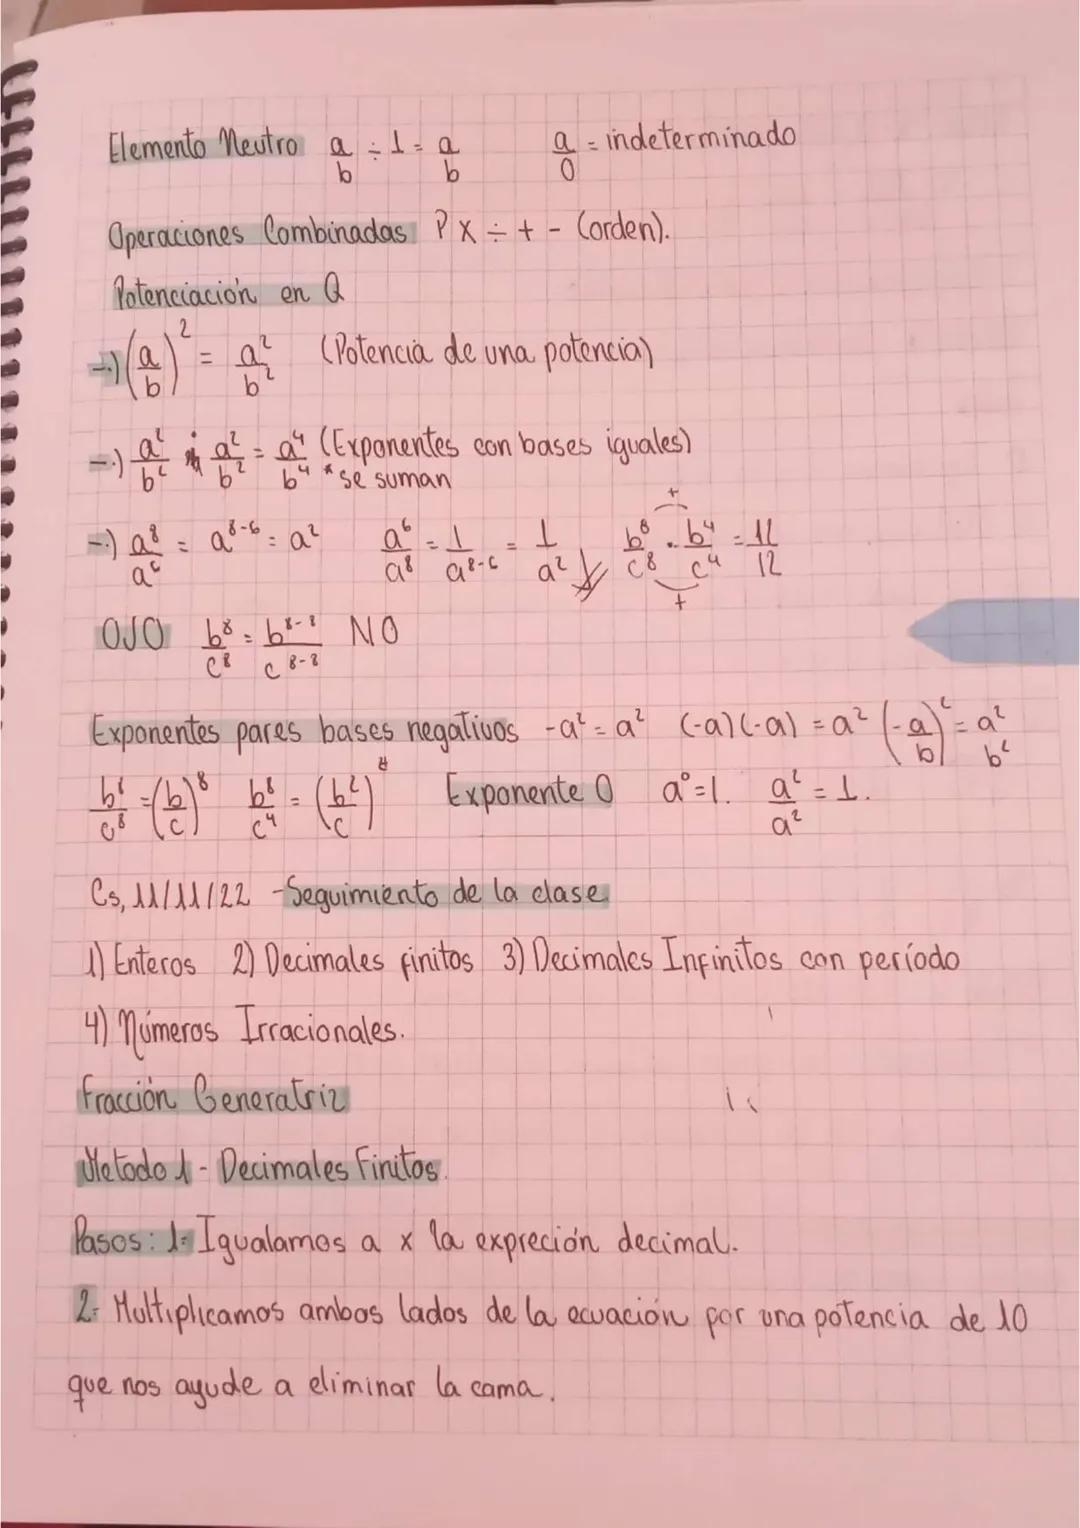 Elemento Neutro a/b ÷ 1 = a/b a/0 = indeterminado
Operaciones Combinadas P x ÷ + - (orden).
Potenciación en Q
-.) (a/b)² = a²/b² (Potencia de una potencia)
-.) a²/b² · a²/b² = a⁴/b⁴ (Exponentes con bases iguales)
*se suman
-.) a⁸/a⁶ = a⁸⁻⁶ = a² a⁶/a⁸ = 1/a⁸⁻⁶ = 1/a² b⁸/c⁸ · b⁴/c⁴ = 12/12
OJO b⁸/c⁸ = b⁸⁻⁸/c⁸⁻⁸ NO
Exponentes pares bases negativos -a² = a² (-a)(-a) = a² (-a/b)² = a²/b²
b⁸/c⁸ = (b/c)⁸ b⁸/c⁴ = (b²/c)⁴ Exponente 0 a⁰=1. a²/a² = 1.
Cs, 11/11/22 -Seguimiento de la clase
1) Enteros 2) Decimales finitos 3) Decimales Infinitos con período
4) Números Irracionales.
Fracción Generatriz
Metodo 1 - Decimales Finitos.
Pasos: 1- Igualamos a x la expreción decimal.
2- Multiplicamos ambos lados de la ecuación por una potencia de 10
que nos ayude a eliminar la cama.